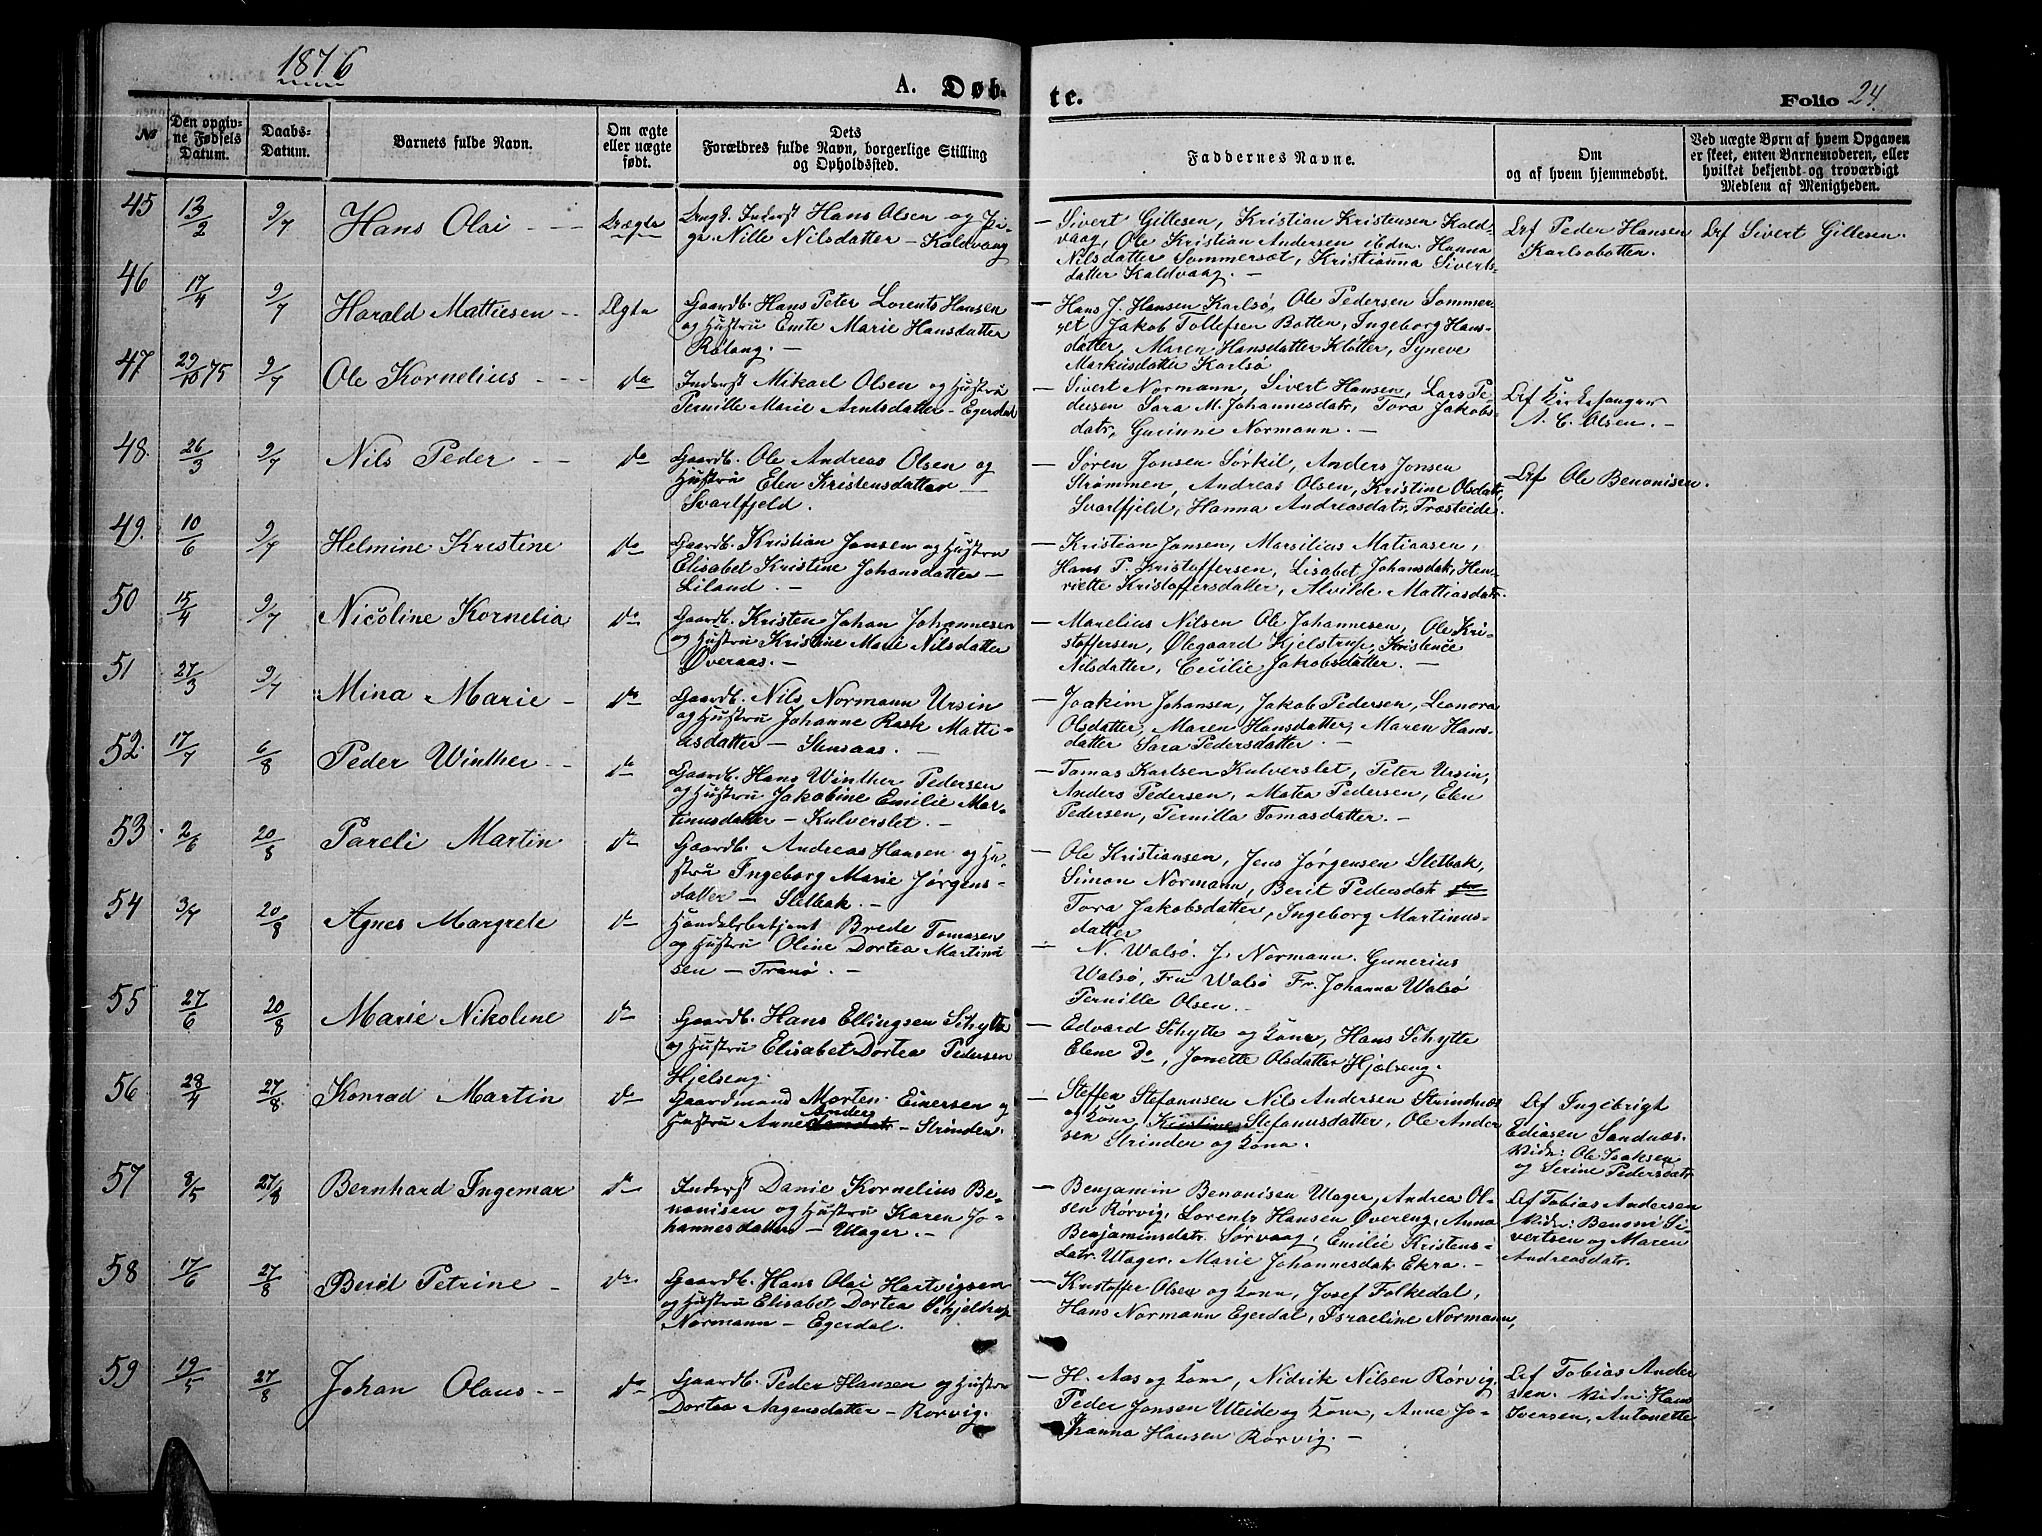 1876
A. Døb-
te.
Folio 24.
№
Den opgiv-
ne Fødsels
Datum.
Daabs-
Datum.
Barnets fulde Navn.
Om ægte
eller uægte
født.
Dets
Forældres fulde Navn, borgerlige Stilling
og Opholdssted.
Faddernes Navne.
Om
og af hvem hjemmedøbt.
Ved uægte Børn af hvem Opgaven
er skeet, enten Barnemoderen, eller
hvilket bekjendt og troværdigt
Medlem af Menigheden.
45 13/2 9/7 Hans Olai - - Uægte
Ungk. Inderst Hans Olsen og Pi-
ge Nille Nilsdatter - Kaldvaag
- Sivert Gillesen, Kristian Kristensen Kald-
vaag, Ole Kristian Andersen ibdm. Hanna
Nilsdatter Sommersæt, Kristianna Siverts-
datter Kaldvaag. -
Af Peder Hansen
Karlsøbotten.
Af Sivert Gillesen.
46 17/4 9/7 Harald Mattiesen - - Ægte
Gaardb. Hans Peter Lorents Hansen
og Hustru Emte Marie Hansdatter
Rølang. -
- Hans J. Hansen Karlsø, Ole Pedersen Sommer
set Jakob Tollefsen Botten, Ingeborg Hans-
datter, Maren Hansdatter Kløtter, Syneve
Markusdatter Karlsø
47 29/10 75 9/7 Ole Kornelius - - - do
Inderst Mikael Olsen og Hustru
Pernille Marie Arntsdatter - Egerdal
- Sivert Normann, Sivert Hansen, Lars Pe-
dersen Sara M. Johannesdatr, Tora Jakobs-
datr, Gurinne Normann. -
Af Kirkesanger
N. C. Olsen. -
48. 26/3 9/7 Nils Peder - - do
Gaardb. Ole Andreas Olsen og
Hustru Elen Kristensdatter -
Svartfjeld. -
- Søren Jensen Sørkil, Anders Jonsen
Strømmen, Andreas Olsen, Kristine Olsdatr,
Svartfjeld, Hanna Andreasdatr, Præsteide.
Af Ole Benonisen.
49. 10/6 9/7 Helmine Kristine do
Gaardb. Kristian Jensen og Hustru
Elisabet Kristine Johansdatter -
Liland. -
- Kristian Jansen, Marsilius Matiassen,
Hans P. Kristoffersen, Lisabet Johansdatr, Hen-
riette Kristoffersdatter, Alvilde Mattiasdatr.
50 15/4 9/7 Nicoline Kornelia do
Gaardb. Kristen Johan Johannesen
og Hustru Kristine Marie Nilsdatter
Øveraas. -
- Marelius Nilsen Ole Johannesen, Ole Kri-
stoffersen, Ølegaard Kjelstrup, Kristence
Nilsdatter, Cecilie Jakobsdatter. -
51 27/3 9/7 Mina Marie - do
Gaardb. Nils Normann Ursin
og Hustru Johanne Rask Matti-
asdatter - Stensaas. -
- Joakim Johansen, Jakob Pedersen, Leonora
Olsdatter, Maren Hansdatter, Maren Hans-
datter Sara Pedersdatter. -
52. 17/7 6/8 Peder Winther - - do
Gaardb. Hans Winther Pedersen
og Hustru Jakobine Emilie Mar-
tinusdatter - Kulverslet. -
- Tomas Karlsen Kulverslet, Peter Ursin,
Anders Pedersen, Matea Pedersen, Elen
Pedersen, Pernilla Tomasdatter. -
53. 2/6 20/8 Pareli Martin do
Gaardb. Andreas Hansen og Hu-
stru Ingeborg Marie Jørgens-
datter - Sletbak. -
- Ole Kristiansen, Jens Jørgensen Sletbak,
Simon Normann, Berit Pedersdatr
Tora Jakobsdatter, Ingeborg Martinus-
datter
54 3/7 20/8 Agnes Margrete do
Handelsbetjent Brede Tomasen
og Hustru Oline Dortea Martinu
sen - Tranø. -
- N. Walsø. J. Normann. Gunerius
Walsø, Fru Walsø Fr. Johanna Walsø
Pernille Olsen. -
55 27/6 20/8 Marie Nikoline do
Gaardb. Hans Ellingsen Schytte
og Hustru Elisabet Dortea Pedersen
Hjelseng.
- Edvard Schytte og Kone, Hans Schytte
Elene Do, Jonette Olsdatter Hjelseng.
56. 28/4 27/8 Konrad Martin do
Gaardmand Morten Einersen og
Hustru Anne Anders datr - Strinden.
- Steffen Stefanusen Nils Andersen Strindnæs
og Kone, Kristine Stefanusdatter, Ole Ander
sen Strinden og Kone.
Af Ingebrigt
Ediasen Sandnæs.
Vidn: Ole Isaksen
og Serine Pedersdatr
57 8/5 27/8 Bernhard Ingemar do
Inderst Danie Kornelius Be-
nonisen og Hustru Karen Jo-
hannesdatter - Utager. -
- Benjamin Benonisen Utager, Andrea Ol-
sen Rørvig, Lorents Hansen Øvereng, Anna
Benjaminsdatr. Sørvaag, Emilie Kristens-
datr. Utager. Marie Johannesdatr Ekra. -
Af Tobias Andersen
Vidn: Benoni Si-
vertsen og Maren
Andreasdatr.
58 17/6 27/8 Berit Petrine - do
Gaardb. Hans Olai Hartvigsen
og Hustru Elisabet Dortea Schjeldrup
Normann - Egerdal.
- Kristoffer Olsen og Kone, Josef Folkedal,
Hans Normann Egerdal, Israeline Normann,
59 19/5 27/8 Johan Olaus - - do
Gaardb. Peder Hansen og Hustru
Dortea Aagensdatter - Rørvig.
- H. Aas og Kone, Nidrik Nilsen Rørvig
Peder Jonsen Uteide og Kone, Anne Jo-
hanna Hansen Rørvig. -
Af Tobias Ander
sen. Vidn: Hans
Iversen, Antonette